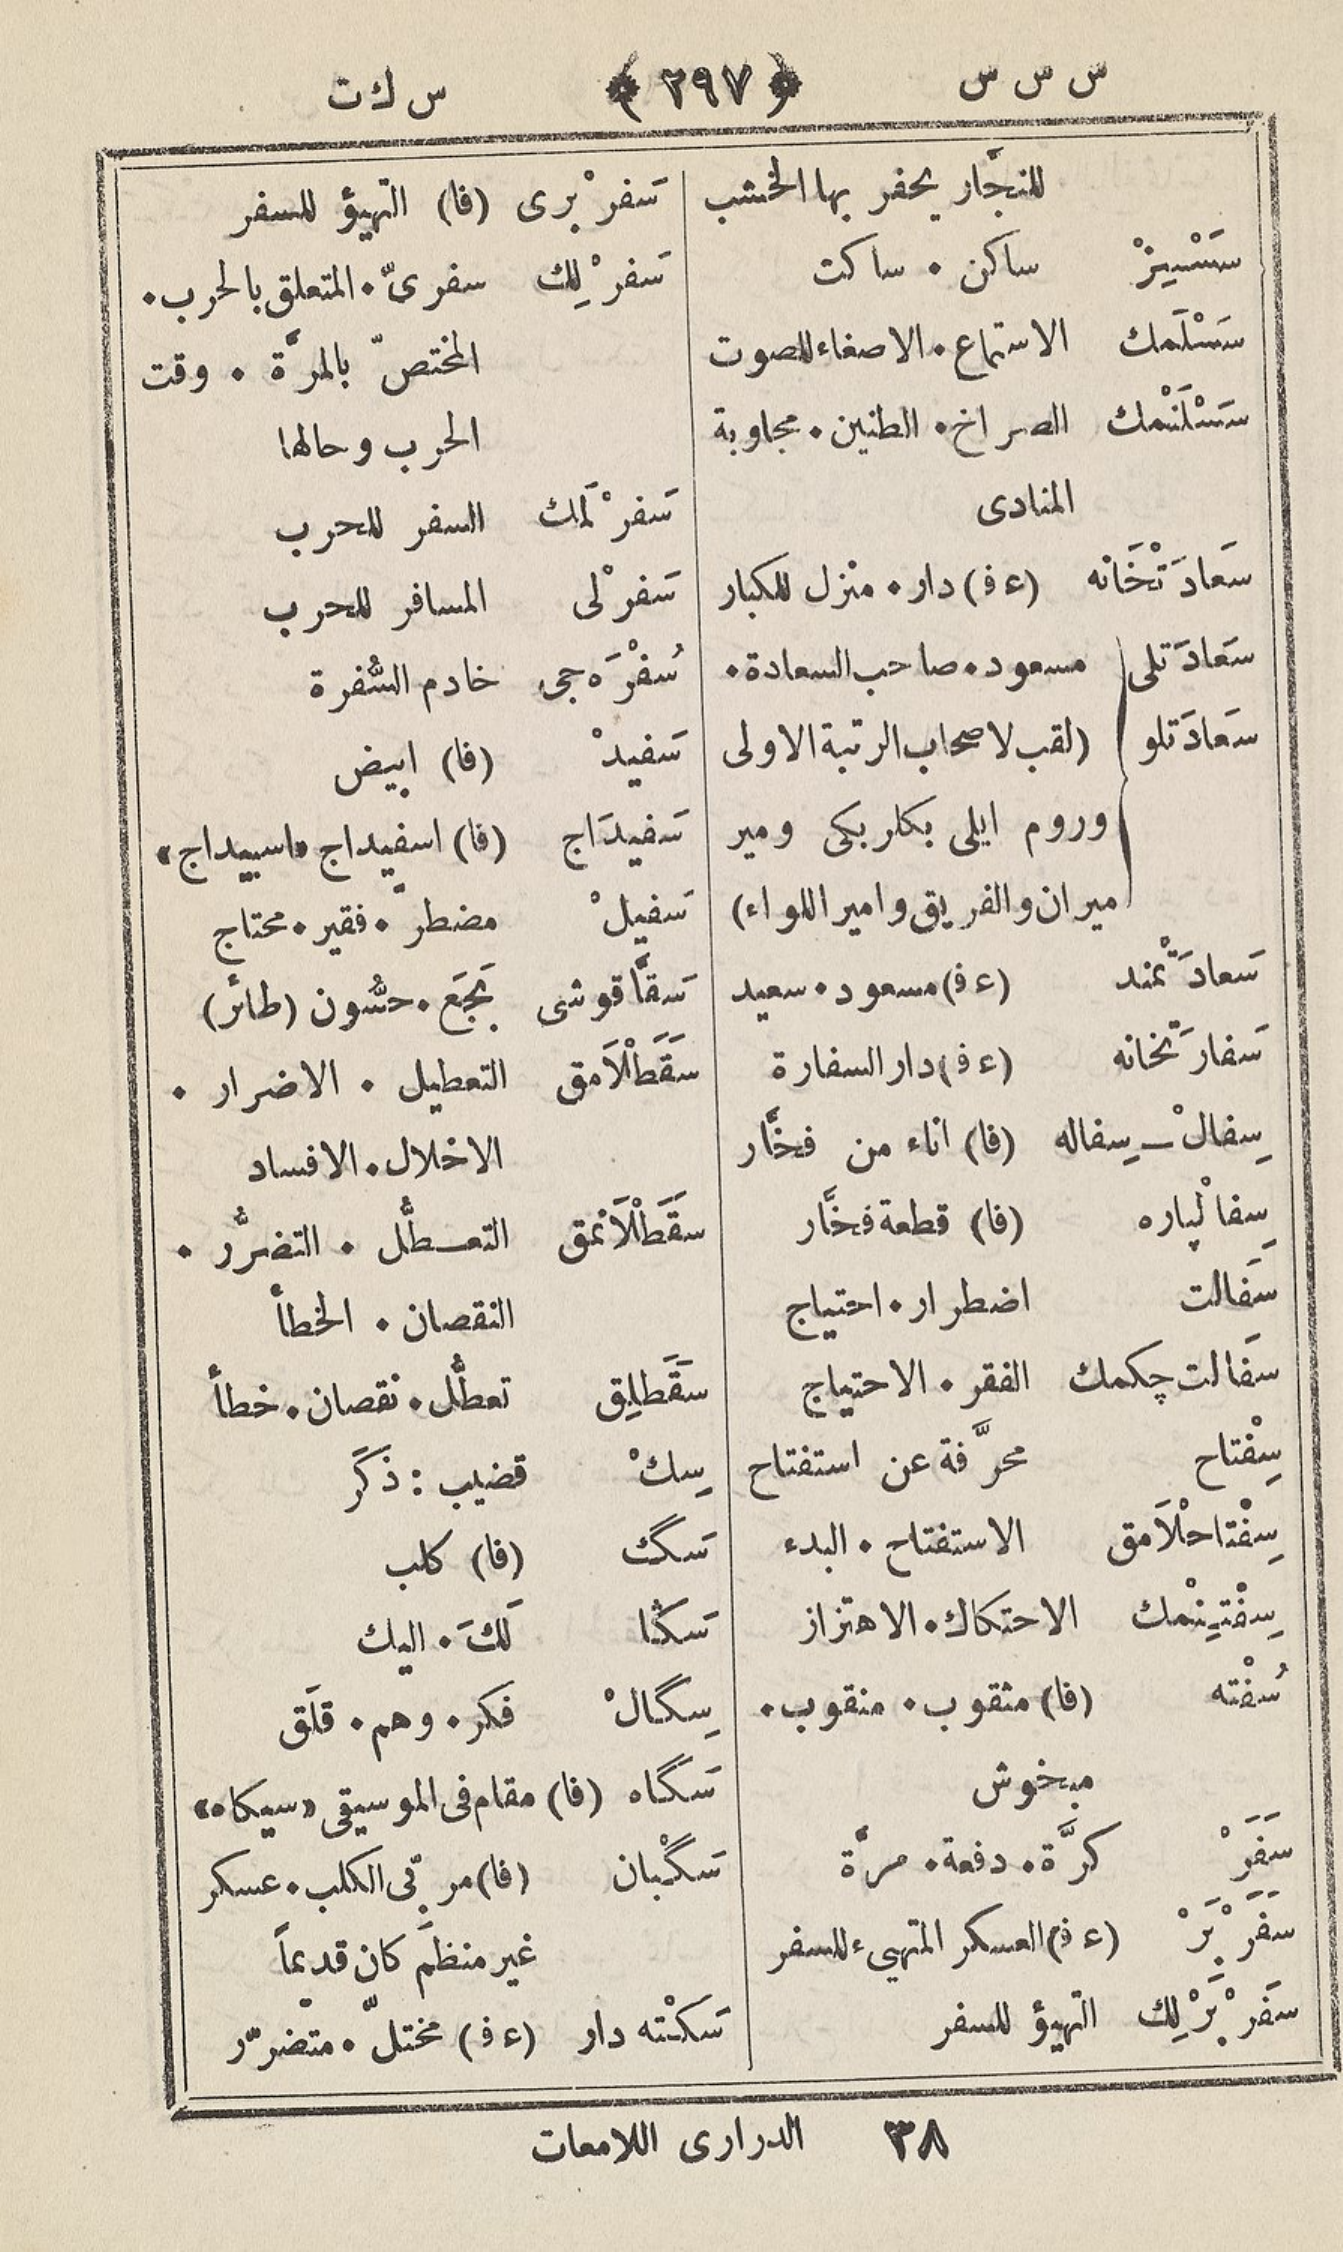 س س س ﴿ ٢٩٧ ﴾ س ك ت
للنجَّار يحفر بها الخشب
سَسْسِيزْ ساكن ٠ ساكت
سَسْلَمك الاستماع ٠ الاصغاء للصوت
سَسْلَنْمك الصراخ ٠ الطنين ٠ مجاوبة
المنادى
سَعادَتْخَانه (ع ف) دار ٠ منزل للكبار
سَعادَتلى مسعود ٠ صاحب السعادة ٠
سَعادَتلو (لقب لاصحاب الرتبة الاولى
وروم ايلى بكلربكى ومير
ميران والفريق وامير اللواء)
سَعادَتْمند (ع ف) مسعود ٠ سعيد
سَفارَتخانه (ع ف) دار السفارة
سِفالْ ــ سِفاله (فا) اناء من فخَّار
سِفالْپاره (فا) قطعة فخَّار
سَفَالت اضطرار ٠ احتياج
سَفَالت چكمك الفقر ٠ الاحتياج
سِفْتاح محرَّفة عن استفتاح
سِفْتاحْلاَمق الاستفتاح ٠ البدء
سِفْتِينْمك الاحتكاك ٠ الاهتزاز
سُفْته (فا) مثقوب ٠ منقوب ٠
مبخوش
سَفَرْ كرَّة ٠ دفعة ٠ مرَّة
سَفَرْبَرْ (ع ف) العسكر المتهيء للسفر
سَفَرْبَرْلِك التهيؤ للسفر
سَفرْبرى (فا) التهيؤ للسفر
سَفرْلِك سفرىّ ٠ المتعلق بالحرب ٠
المختصّ بالمرَّة ٠ وقت
الحرب وحالها
سَفرْلَمك السفر للحرب
سَفرْلى المسافر للحرب
سُفْرَه جى خادم السُّفرة
سَفيدْ (فا) ابيض
سَفيدَاج (فا) اسفيداج «اسبيداج»
سَفيلْ مضطرّ ٠ فقير ٠ محتاج
سَقَّا قوشى بَجَع ٠ حسُّون (طائر)
سَقَطْلاَمق التعطيل ٠ الاضرار ٠
الاخلال ٠ الافساد
سَقَطْلاَنمق التعـطُّل ٠ التضرُّر ٠
النقصان ٠ الخطأ
سَقَطلِق تعطُّل ٠ نقصان ٠ خطأ
سِكْ قضيب : ذَكَر
سَگ (فا) كلب
سَكڭا لَكَ ٠ اليك
سِگالْ فكر ٠ وهم ٠ قلَق
سَگاه (فا) مقام فى الموسيقى «سيكاه»
سَگْبان (فا) مربّى الكلب ٠ عسكر
غير منظَم كان قديماً
سَكْته دار (ع ف) مختلّ ٠ متضرّر
٣٨ الدرارى اللامعات